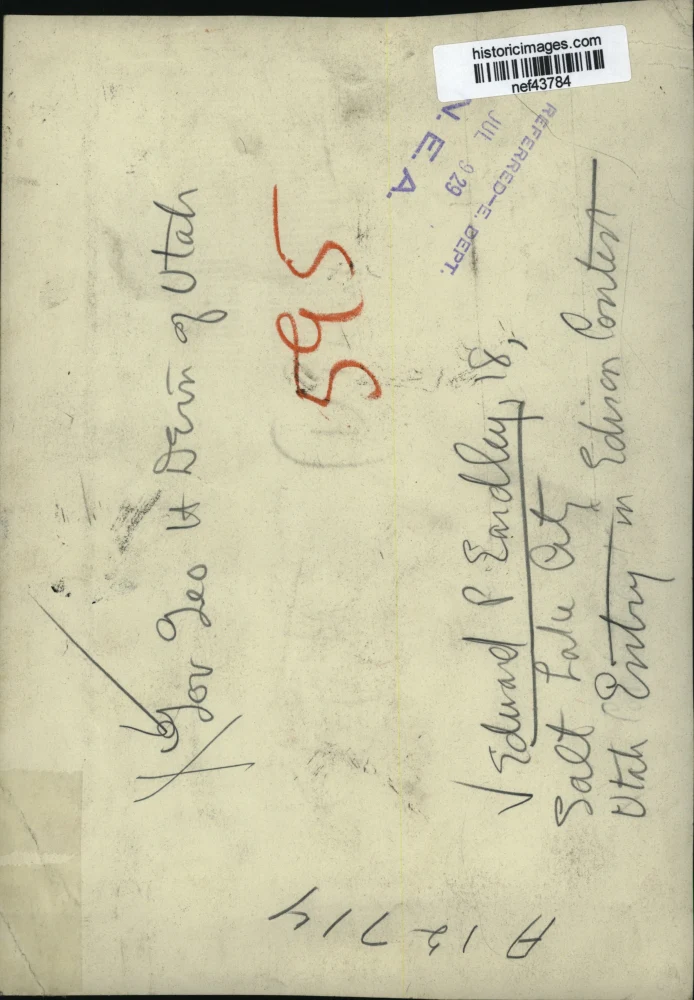 historicimages.com
nef43784
REFERRED-E. DEPT.
JUL 9 29
N. E. A.
Gov Geo H Dern of Utah
595
Edward P Eardley, 18,
Salt Lake City
Utah Entry in Edison Contest
A 12714